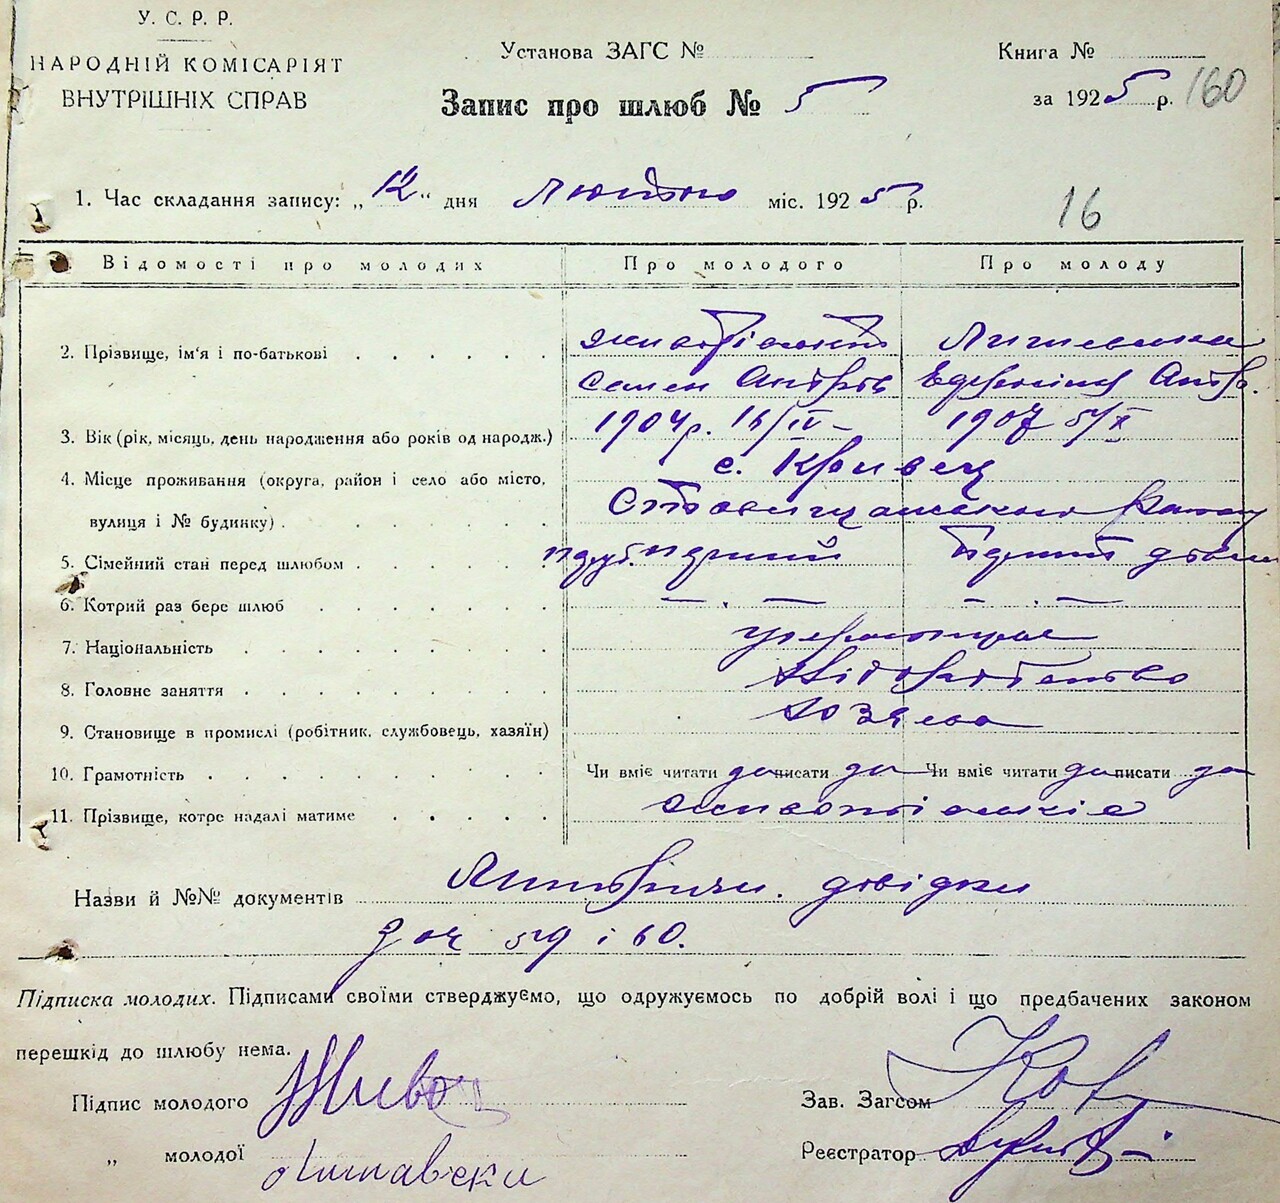 У. С. Р. Р.
НАРОДНІЙ КОМІСАРІЯТ
ВНУТРІШНІХ СПРАВ
Установа ЗАГС №
Книга №
Запис про шлюб № 5
за 1925 р. 160
1. Час складання запису: „12“ дня лютого міс. 1925 р.
16
Відомості про молодих Про молодого Про молоду
2. Прізвище, ім'я і по-батькові
Семен Андрів
3. Вік (рік, місяць, день народження або років од народж.) 1904 р. 16/IV – 1907 5/X
4. Місце проживання (округа, район і село або місто, с. Кривець
вулиця і № будинку) Ставищанського району
5. Сімейний стан перед шлюбом
6. Котрий раз бере шлюб — . — — . —
7. Національність
8. Головне заняття хліборобство
9. Становище в промислі (робітник, службовець, хазяїн)
10. Грамотність Чи вміє читати да писати да Чи вміє читати да писати да
11. Прізвище, котре надалі матиме
Назви й №№ документів довідки
59 і 60.
Підписка молодих. Підписами своїми стверджуємо, що одружуємось по добрій волі і що предбачених законом
перешкід до шлюбу нема.
Підпис молодого
Зав. Загсом
„ молодої
Реєстратор